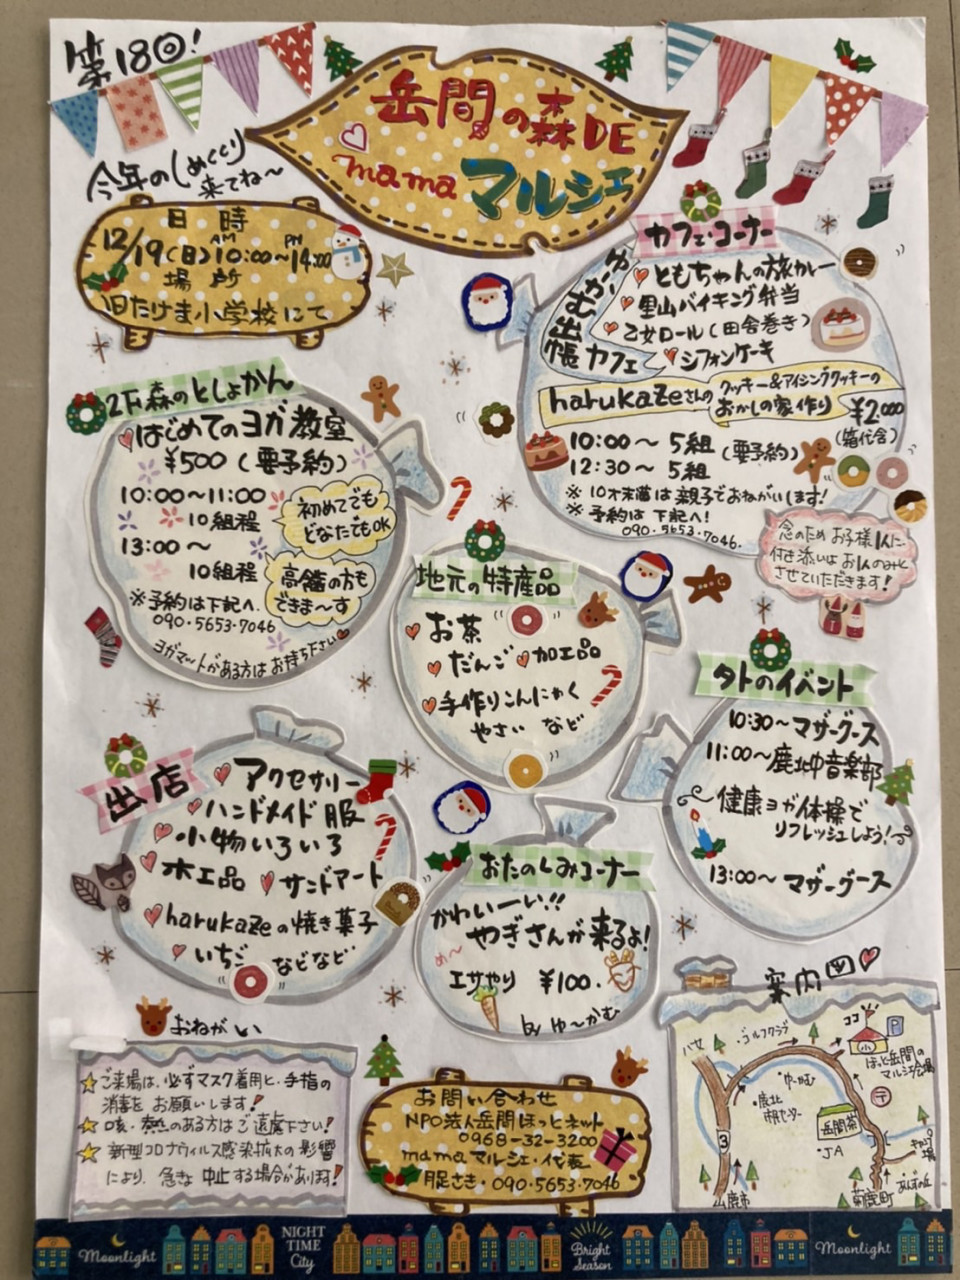 第18回!
今年のしめくくり
来てね〜
岳間の森DE
mama マルシェ
日時
12/19(日)AM10:00〜PM14:00
場所
旧たけま小学校にて
カフェ・コーナー
ゆ〜かむ出帳カフェ
ともちゃんの旅カレー
里山バイキング弁当
乙女ロール(田舎巻き)
シフォンケーキ
harukazeさんの
クッキー&アイシングクッキーの
おかしの家作り
¥2,000
(箱代含)
10:00〜 5組(要予約)
12:30〜 5組
※10才未満は親子でおねがいします!
※予約は下記へ!
090-5653-7046.
念のためお子様1人に
付き添いはお1人のみと
させていただきます!
2F 森のとしょかん
はじめてのヨガ教室
¥500(要予約)
10:00〜11:00
10組程
13:00〜
10組程
初めてでも
どなたでもOK
高齢の方も
できま〜す
※予約は下記へ.
090-5653-7046
ヨガマットがある方はお持ち下さい
地元の特産品
お茶
だんご 加工品
手作りこんにゃく
やさい など
外のイベント
10:30〜マザーグース
11:00〜鹿北中音楽部
健康ヨガ体操で
リフレッシュしよう!
13:00〜マザーグース
出店
アクセサリー
ハンドメイド服
小物いろいろ
木工品 サンドアート
harukazeの焼き菓子
いちご などなど
おたのしみコーナー
かわいーい!!
やぎさんが来るよ!
め〜
エサやり ¥100.
by ゆ〜かむ
おねがい
ご来場は、必ずマスク着用と、手指の
消毒をお願いします!
咳・熱のある方はご遠慮下さい!
新型コロナウイルス感染拡大の影響
により、急きょ中止する場合があります!
お問い合わせ
NPO法人岳間ほっとネット
0968-32-3200
mamaマルシェ・代表
服さき・090-5653-7046
案内図
八女
・ゴルフクラブ
ココ
P
小
ほっと岳間の
マルシェ会場
・ゆ〜かむ
・鹿北
市民センター
岳間茶
・JA
3
〒
キャンプ場
山鹿市
菊鹿町
あんずの丘
Moonlight
NIGHT
TIME
City
Bright
Season
Moonlight